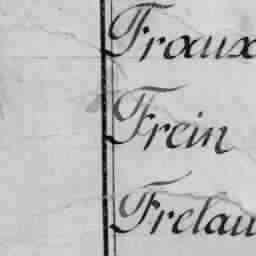 Fraux
Frein
Frelau